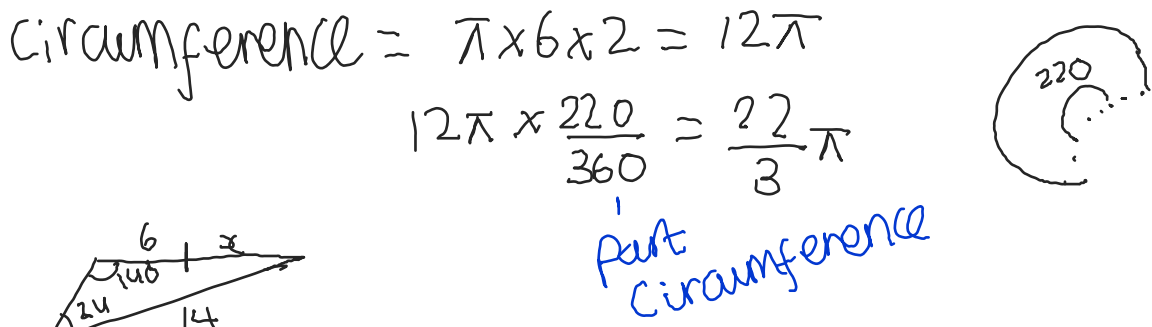 circumference = π×6×2 = 12π
220
12π × 220/360 = 22/3 π
part
circumference
6 x
140
24
14